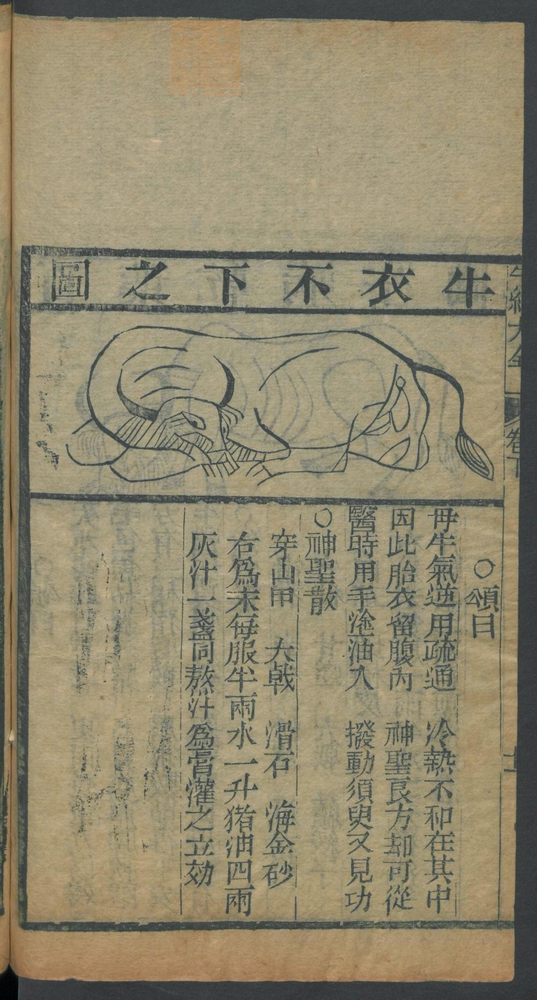 牛衣不下之圖
○頌曰
母牛氣逆用疏通　冷熱不和在其中
因此胎衣留腹內　神聖良方却可從
醫時用手塗油入　撥動須臾又見功
○神聖散
穿山甲　大戟　滑石　海金砂
右爲末每服半兩水一升猪油四兩
灰汁一盞同熬汁爲膏灌之立効
牛經大全
卷下